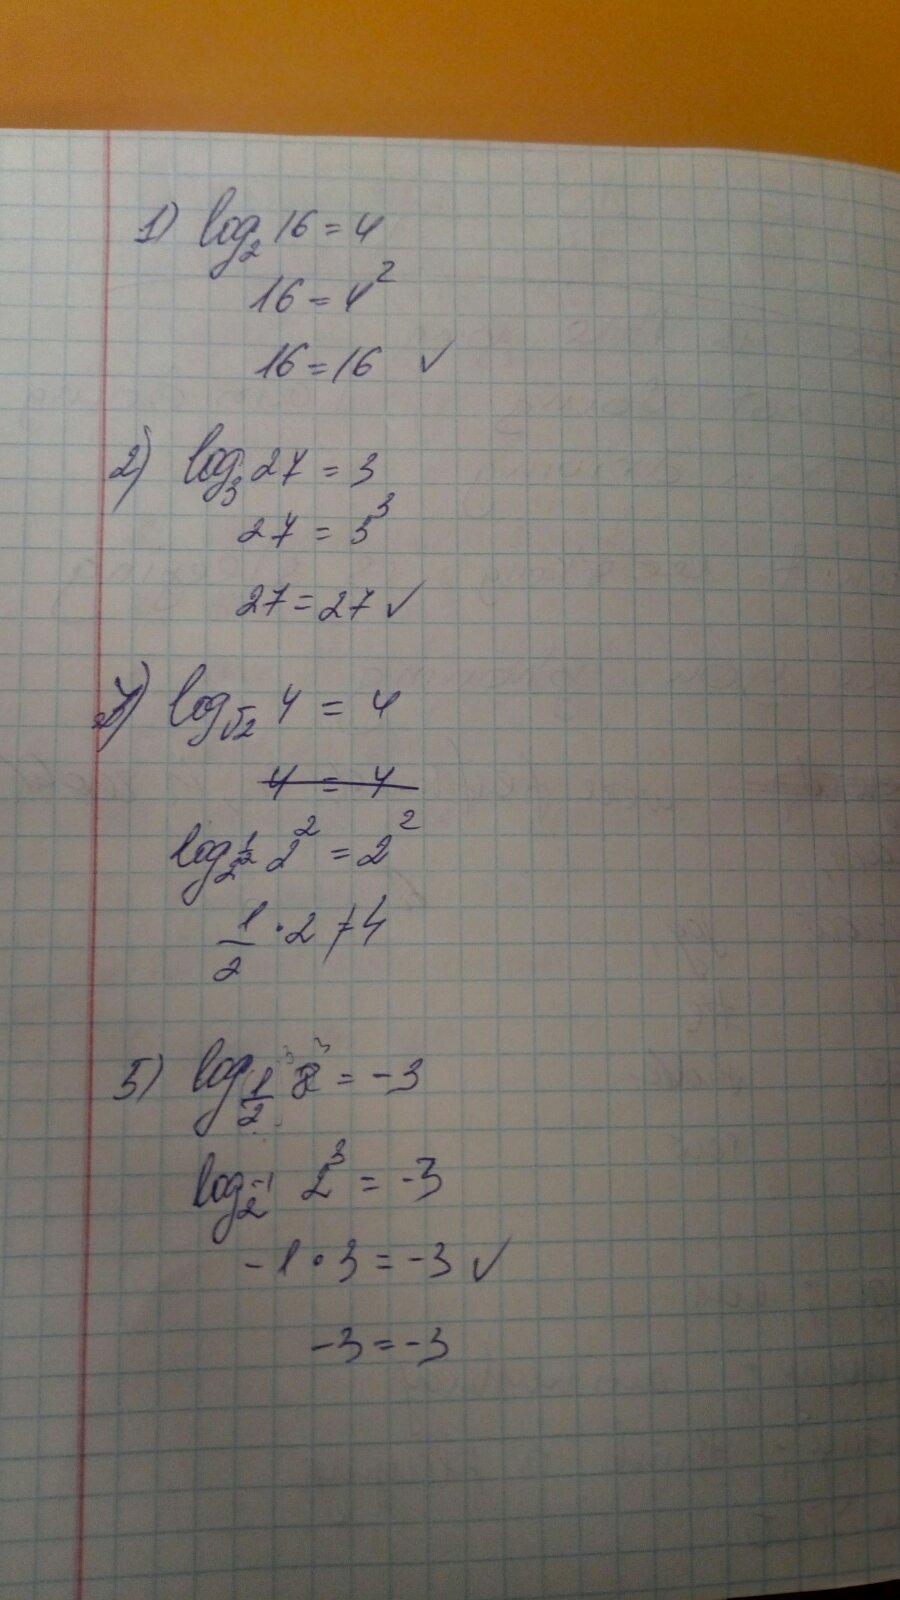 1) log₂ 16 = 4
16 = 4²
16 = 16 ✓
2) log₃ 27 = 3
27 = 3³
27 = 27 ✓
log_√2 4 = 4
4 = 4
log_2^(1/2) 2² = 2²
1/2 · 2 ≠ 4
5) log_1/2 8 = -3
log_2^(-1) 2³ = -3
-1 · 3 = -3 ✓
-3 = -3